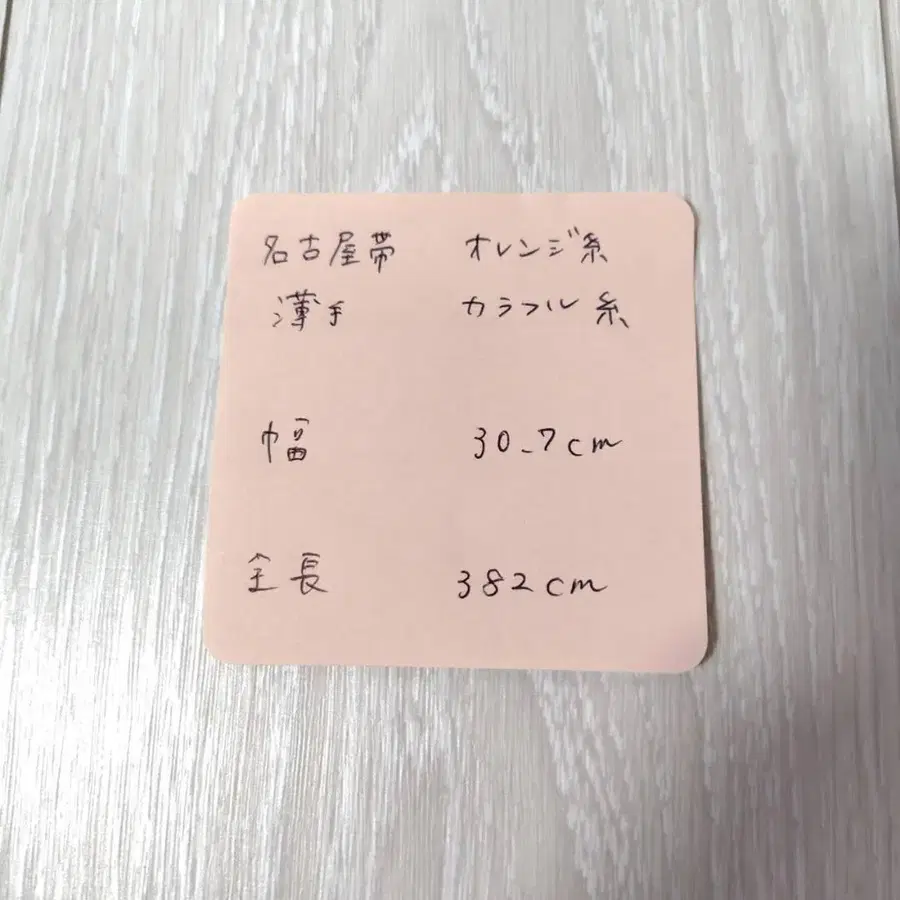 名古屋帯 オレンジ糸
薄手 カラフル糸
幅 30.7cm
全長 382cm